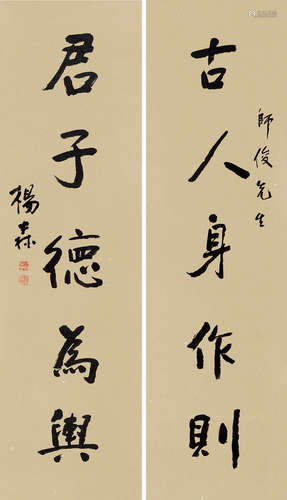 古人身作則
師俊先生
君子德為輿
楊森